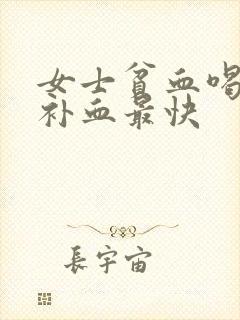 女士贫血喝
补血最快
長宇宙